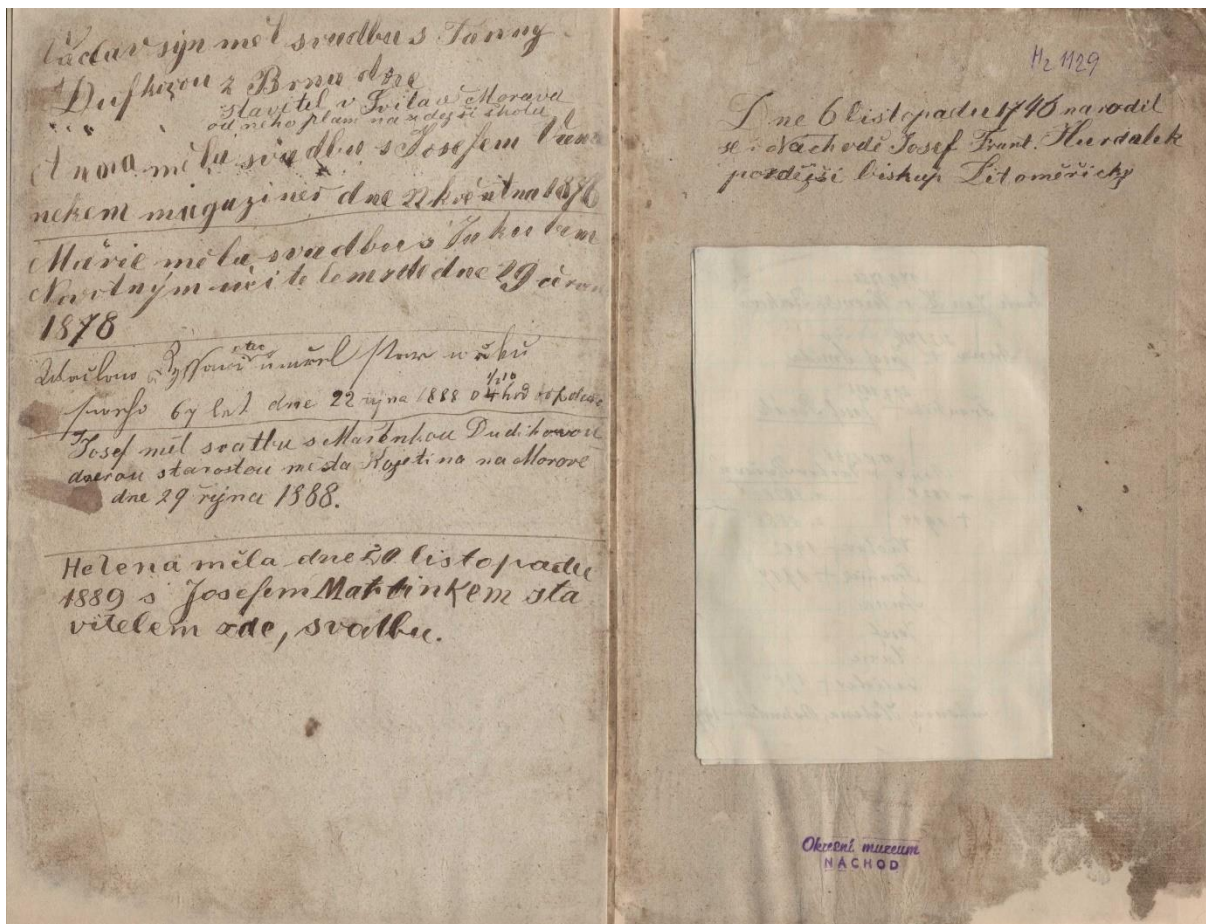 Václav syn měl svadbu s Fanny
Dufkovou z Brna dne
" " stavitel v Svitav Morava
od něho plán na zdejší školu
Anna měla svadbu s Josefem Vaně
nekem magazinér dne 22 května 1876
Marie měla svadbu s Jakubem
Novotným učitelem zde dne 29 červ
1878
Václav umřel stár u věku
svého 67 let dne 22 října 1888 o 1/2 10 hod
Josef měl svatbu s Mařenkou Dudikovou
dcerou starostou města Kojetina na Moravě
dne 29 října 1888.
Helena měla dne 20 listopadu
1889 s Josefem Martinkem sta
vitelem zde, svatbu.
Hz 1129
Dne 6 listopadu 1746 narodil
se v Náchodě Josef Frant. Hurdalek
pozdější biskup Litoměřický
Okresní muzeum
NÁCHOD